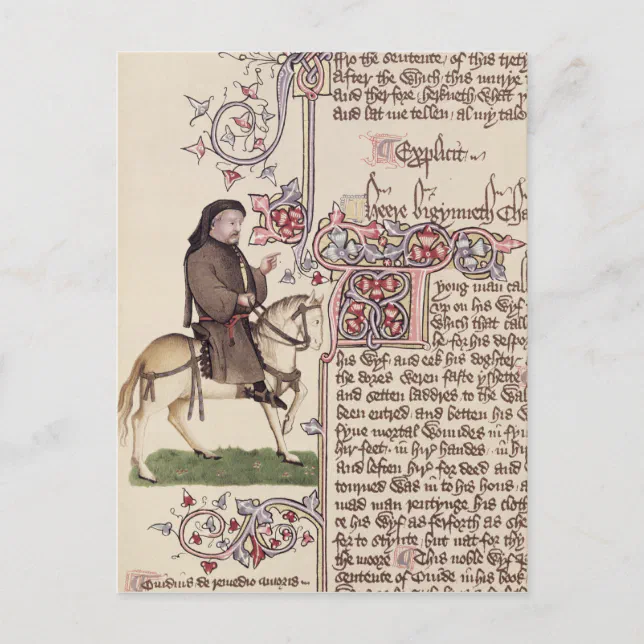 ffro the sentence / of this trety
After the which / this murye
And therfore / herkneth / what y
And lat me tellen / al my tale
Explicit
Heere bigynneth Cha
yong man cal
up on his wyf
which that call
he for his despor
his wyf and eek his doghter
the dores weren faste yshette
and setten laddres to the wal
been entred / and betten his w
fyve mortal woundes in
hir feet / in hir handes / in hir
and leften hir for deed and
tourned was in to his hous / a
mad man rentynge his cloth
ce his wyf as ferforth as she
for to stynte / but nat for thy
the moore ¶ This noble wyf
sentence of Ouide in his book
¶ Ouidius de remedio amoris